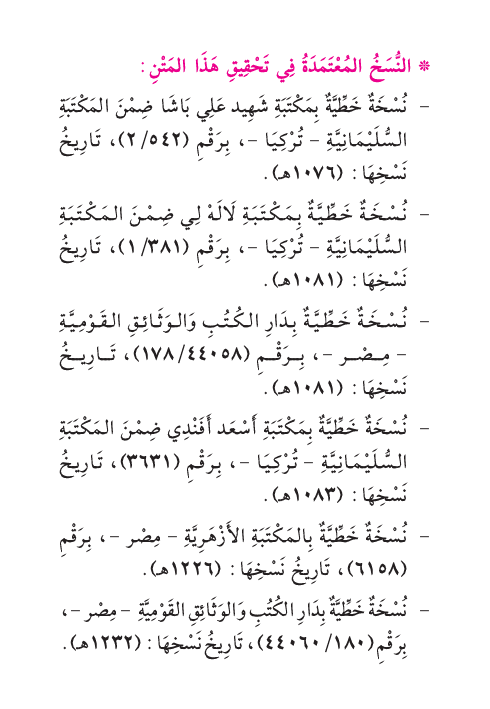 * النُّسَخُ المُعْتَمَدَةُ فِي تَحْقِيقِ هَذَا المَتْنِ:
- نُسْخَةٌ خَطِّيَّةٌ بِمَكْتَبَةِ شَهِيد عَلِي بَاشَا ضِمْنَ المَكْتَبَةِ
السُّلَيْمَانِيَّةِ - تُرْكِيَا -، بِرَقْمِ (٢/٥٤٢)، تَارِيخُ
نَسْخِهَا: (١٠٧٦هـ).
- نُسْخَةٌ خَطِّيَّةٌ بِمَكْتَبَةِ لَالَهْ لِي ضِمْنَ المَكْتَبَةِ
السُّلَيْمَانِيَّةِ - تُرْكِيَا -، بِرَقْمِ (١/٣٨١)، تَارِيخُ
نَسْخِهَا: (١٠٨١هـ).
- نُسْخَةٌ خَطِّيَّةٌ بِدَارِ الكُتُبِ وَالوَثَائِقِ القَوْمِيَّةِ
- مِصْر -، بِرَقْمِ (١٧٨/٤٤٠٥٨)، تَارِيخُ
نَسْخِهَا: (١٠٨١هـ).
- نُسْخَةٌ خَطِّيَّةٌ بِمَكْتَبَةِ أَسْعَد أَفَنْدِي ضِمْنَ المَكْتَبَةِ
السُّلَيْمَانِيَّةِ - تُرْكِيَا -، بِرَقْمِ (٣٦٣١)، تَارِيخُ
نَسْخِهَا: (١٠٨٣هـ).
- نُسْخَةٌ خَطِّيَّةٌ بِالمَكْتَبَةِ الأَزْهَرِيَّةِ - مِصْر -، بِرَقْمِ
(٦١٥٨)، تَارِيخُ نَسْخِهَا: (١٢٢٦هـ).
- نُسْخَةٌ خَطِّيَّةٌ بِدَارِ الكُتُبِ وَالوَثَائِقِ القَوْمِيَّةِ - مِصْر -،
بِرَقْمِ (٤٤٠٦٠/١٨٠)، تَارِيخُ نَسْخِهَا: (١٢٣٢هـ).